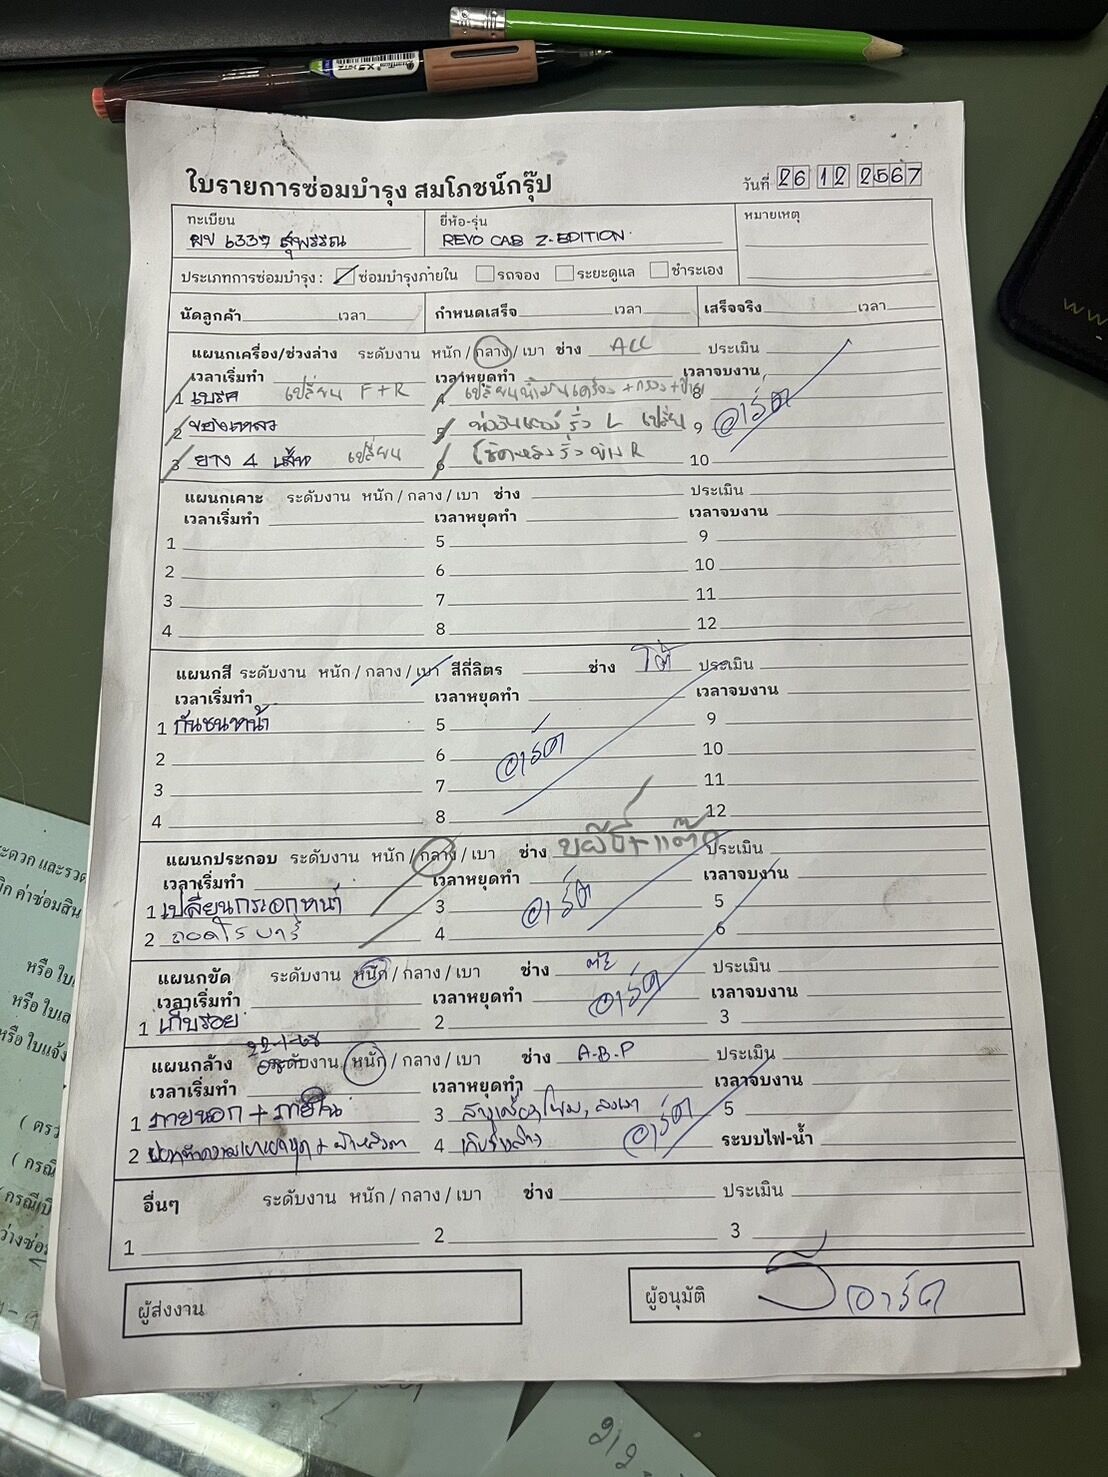 ใบรายการซ่อมบำรุง สมโภชน์กรุ๊ป
วันที่ 26 12 2567
ทะเบียน ยี่ห้อ-รุ่น หมายเหตุ
ผข 6337 สุพรรณ REVO CAB Z-EDITION
ประเภทการซ่อมบำรุง : ซ่อมบำรุงภายใน รถจอง ระยะดูแล ชำระเอง
นัดลูกค้า เวลา กำหนดเสร็จ เวลา เสร็จจริง เวลา
แผนกเครื่อง/ช่วงล่าง ระดับงาน หนัก / กลาง / เบา ช่าง ALL ประเมิน
เวลาเริ่มทำ เวลาหยุดทำ เวลาจบงาน
1 เบรค เปลี่ยน F+R 4 เปลี่ยนน้ำมันเครื่อง+กรอง 8
2 ของเหลว 5 L เปลี่ยน 9 อาร์ต
3 ยาง 4 เส้น เปลี่ยน 6 R 10
แผนกเคาะ ระดับงาน หนัก / กลาง / เบา ช่าง ประเมิน
เวลาเริ่มทำ เวลาหยุดทำ เวลาจบงาน
1 5 9
2 6 10
3 7 11
4 8 12
แผนกสี ระดับงาน หนัก / กลาง / เบา สีกี่ลิตร ช่าง โต้ ประเมิน
เวลาเริ่มทำ เวลาหยุดทำ เวลาจบงาน
1 กันชนหน้า 5 9
2 6 อาร์ต 10
3 7 11
4 8 12
แผนกประกอบ ระดับงาน หนัก / กลาง / เบา ช่าง ประเมิน
เวลาเริ่มทำ เวลาหยุดทำ เวลาจบงาน
1 เปลี่ยนกระจกหน้า 3 อาร์ต 5
2 ถอดโรบาร์ 4 6
แผนกขัด ระดับงาน หนัก / กลาง / เบา ช่าง ประเมิน
เวลาเริ่มทำ เวลาหยุดทำ อาร์ต เวลาจบงาน
1 เก็บรอย 2 3
22-1-68
แผนกล้าง ระดับงาน หนัก / กลาง / เบา ช่าง A-B-P ประเมิน
เวลาเริ่มทำ เวลาหยุดทำ เวลาจบงาน
1 ภายนอก + ภายใน 3 อาร์ต 5
2 4 ระบบไฟ-น้ำ
อื่นๆ ระดับงาน หนัก / กลาง / เบา ช่าง ประเมิน
1 2 3
ผู้ส่งงาน ผู้อนุมัติ อาร์ต